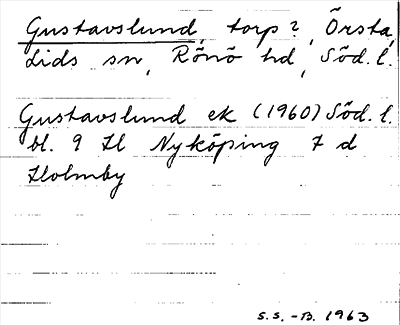 Gustavslund, torp?, Örsta,
Lids sn, Rönö hd, Söd. l.
Gustavslund ek (1960) Söd. l.
bl. 9 Il Nyköping 7 d
Holmby
S.S. -B. 1963